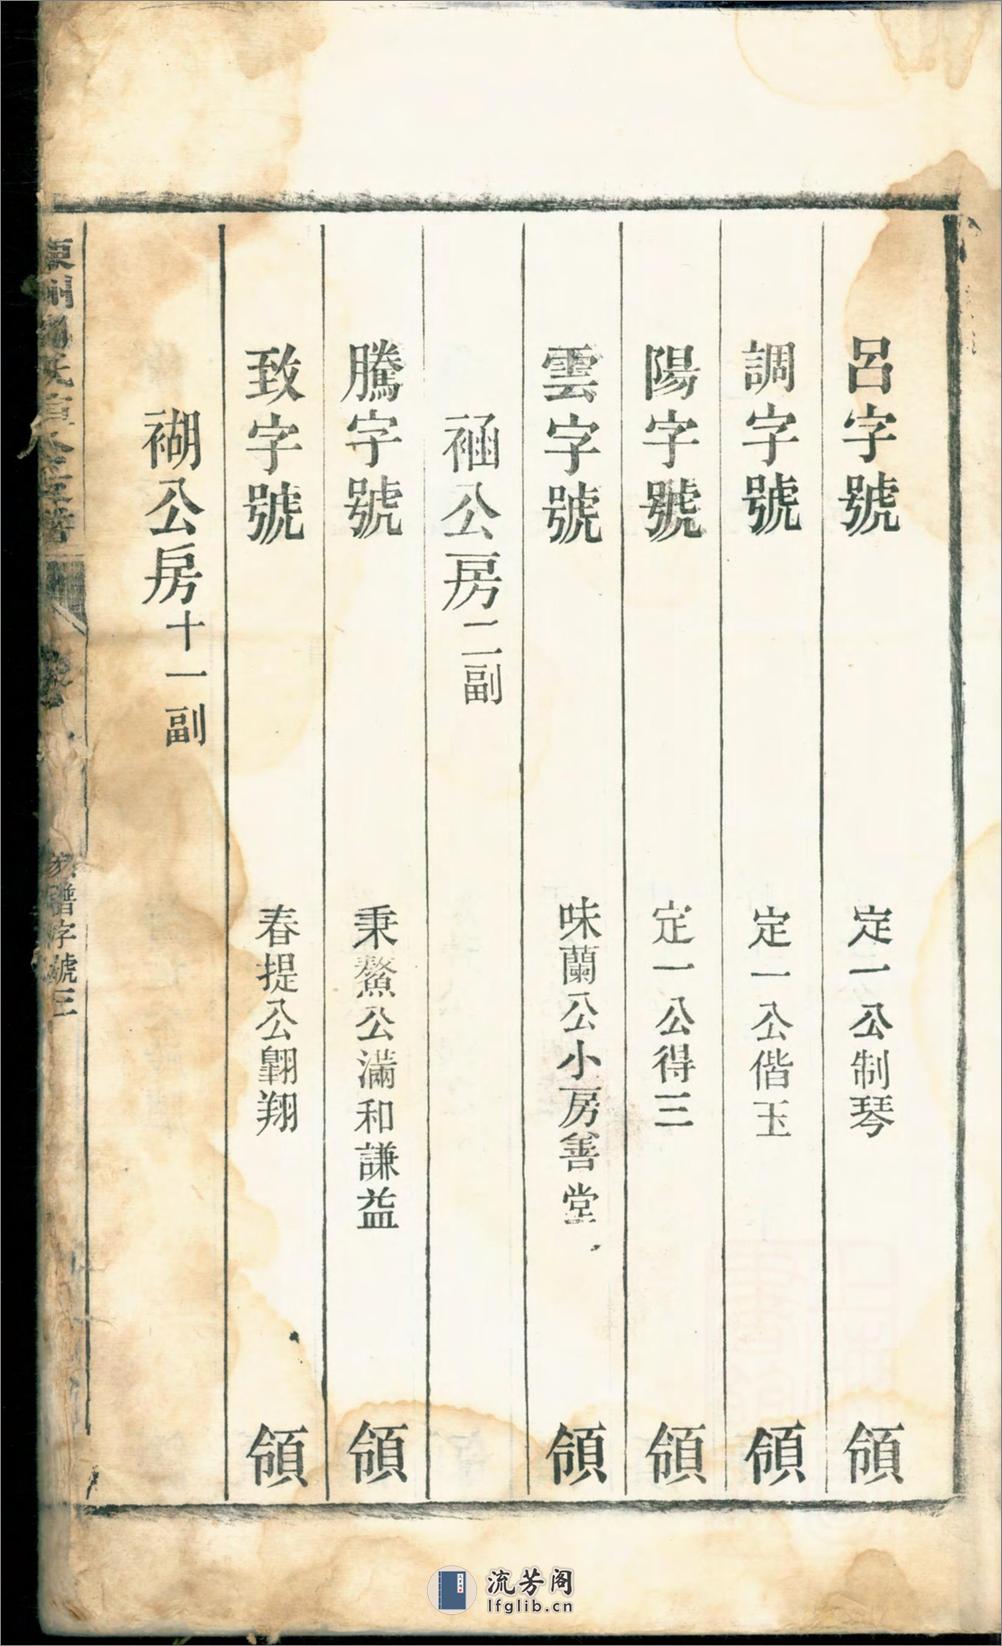 呂字號 定一公制琴 領
調字號 定一公偕玉 領
陽字號 定一公得三 領
雲字號 味蘭公小房善堂 領
凾公房二副
騰字號 秉鰲公滿和謙益 領
致字號 春提公翺翔 領
公房十一副
譜字號三
流芳阁
lfglib.cn